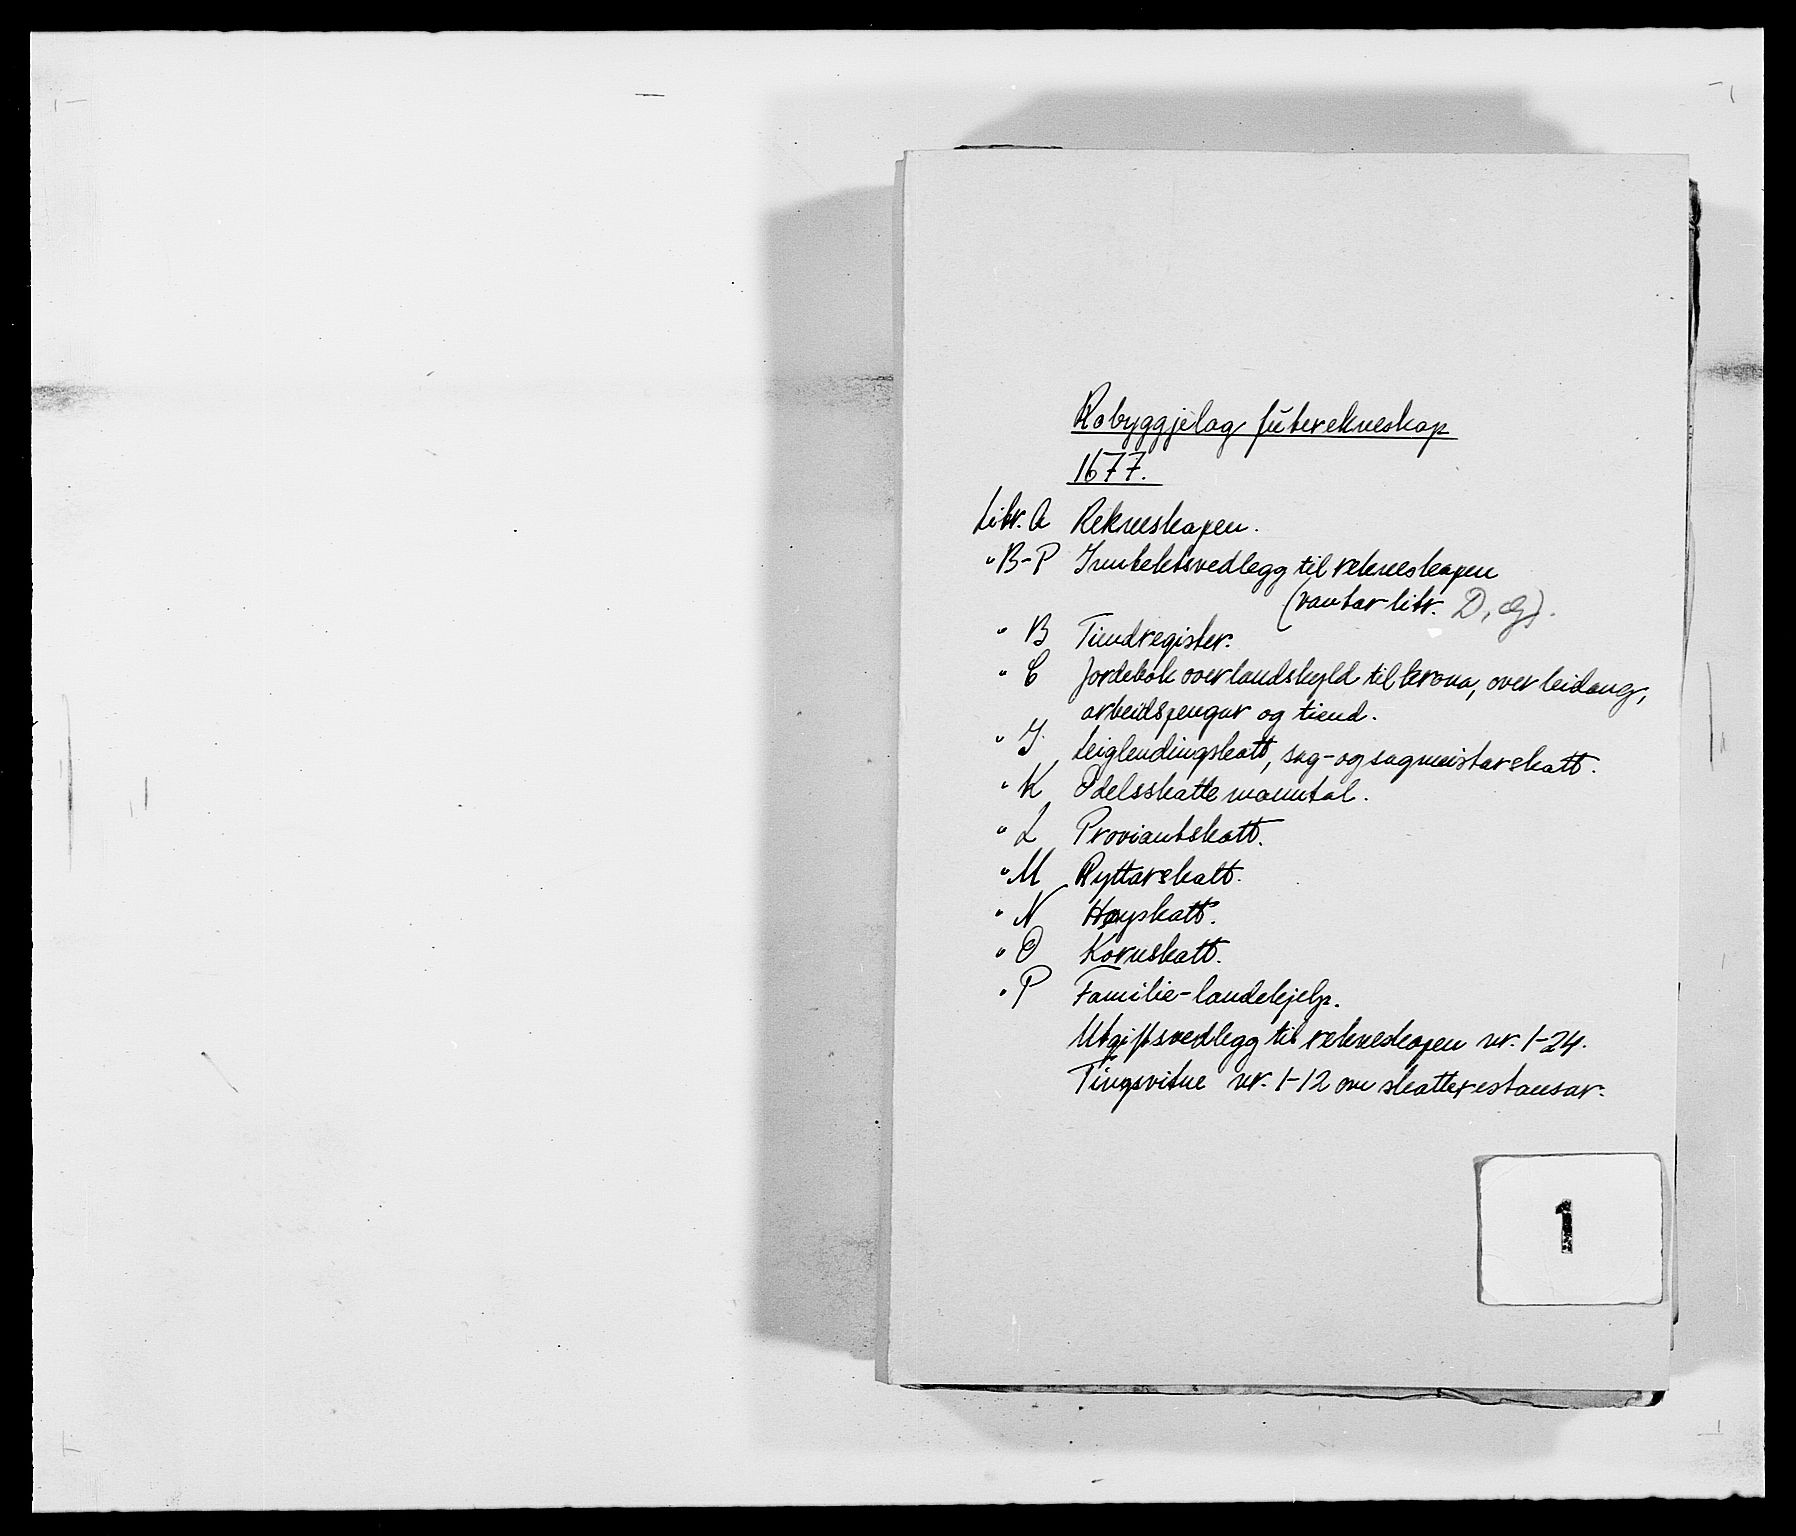 Robyggjelag futerekneskap
1677.
Litr. A Rekneskapen.
" B-P Inntektsvedlegg til rekneskapen
(vantar litr. D, G).
" B Tiendregister.
" C Jordebok over landskyld til krona, over leidang,
arbeidspengar og tiend.
" J Leiglendingskatt, sag- og sagmeistarskatt.
" K Odelsskatte manntal.
" L Proviantskatt.
" M Ryttarskatt.
" N Høyskatt.
" O Kornskatt.
" P Familie-landehjelp.
Utgiftsvedlegg til rekneskapen nr. 1-24.
Tingsvitne nr. 1-12 om skatterestansar.
1